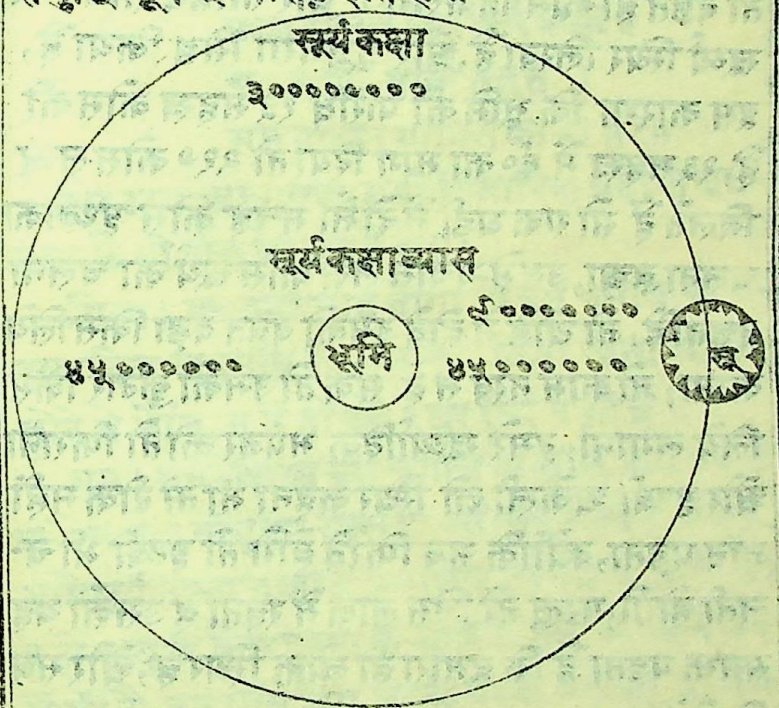 सूर्य कक्षा
३००००००००
सूर्यकक्षाव्यास
९०००००००
४५००००००
भूमि
४५००००००
सू